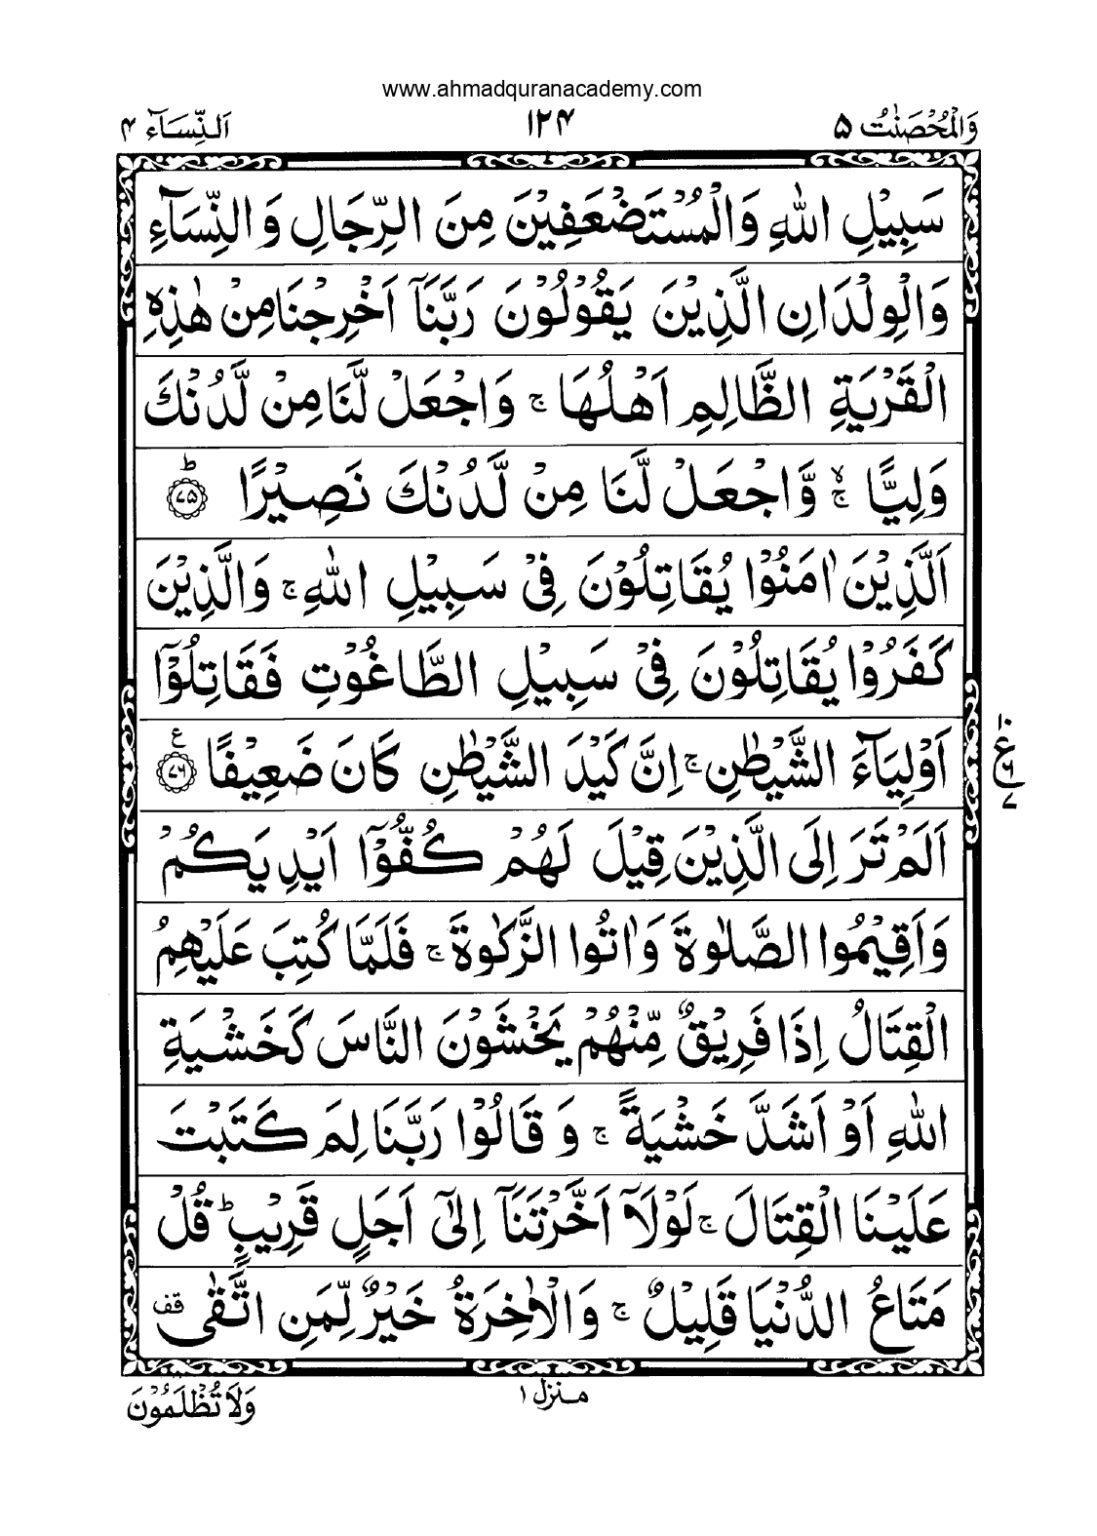 www.ahmadquranacademy.com
وَالْمُحْصَنٰتُ ۵ ۱۲۴ اَلنِّسَآء ۴
سَبِيْلِ اللّٰهِ وَالْمُسْتَضْعَفِيْنَ مِنَ الرِّجَالِ وَ النِّسَآءِ
وَالْوِلْدَانِ الَّذِيْنَ يَقُوْلُوْنَ رَبَّنَآ اَخْرِجْنَا مِنْ هٰذِهِ
الْقَرْيَةِ الظَّالِمِ اَهْلُهَا ۚ وَاجْعَلْ لَّنَا مِنْ لَّدُنْكَ
وَلِيًّا ۙۚ وَّاجْعَلْ لَّنَا مِنْ لَّدُنْكَ نَصِيْرًا ؕ ﴿۷۵﴾
اَلَّذِيْنَ اٰمَنُوْا يُقَاتِلُوْنَ فِيْ سَبِيْلِ اللّٰهِ ۚ وَالَّذِيْنَ
كَفَرُوْا يُقَاتِلُوْنَ فِيْ سَبِيْلِ الطَّاغُوْتِ فَقَاتِلُوْٓا
اَوْلِيَآءَ الشَّيْطٰنِ ۚ اِنَّ كَيْدَ الشَّيْطٰنِ كَانَ ضَعِيْفًا ع ﴿۷۶﴾
۱۰ ع ۶ ۷
اَلَمْ تَرَ اِلَى الَّذِيْنَ قِيْلَ لَهُمْ كُفُّوْٓا اَيْدِيَكُمْ
وَاَقِيْمُوا الصَّلٰوةَ وَاٰتُوا الزَّكٰوةَ ۚ فَلَمَّا كُتِبَ عَلَيْهِمُ
الْقِتَالُ اِذَا فَرِيْقٌ مِّنْهُمْ يَخْشَوْنَ النَّاسَ كَخَشْيَةِ
اللّٰهِ اَوْ اَشَدَّ خَشْيَةً ۚ وَ قَالُوْا رَبَّنَا لِمَ كَتَبْتَ
عَلَيْنَا الْقِتَالَ ۚ لَوْلَآ اَخَّرْتَنَآ اِلٰٓى اَجَلٍ قَرِيْبٍ ؕ قُلْ
مَتَاعُ الدُّنْيَا قَلِيْلٌ ۚ وَالْاٰخِرَةُ خَيْرٌ لِّمَنِ اتَّقٰى قف
منزل ۱
وَلَا تُظْلَمُوْنَ